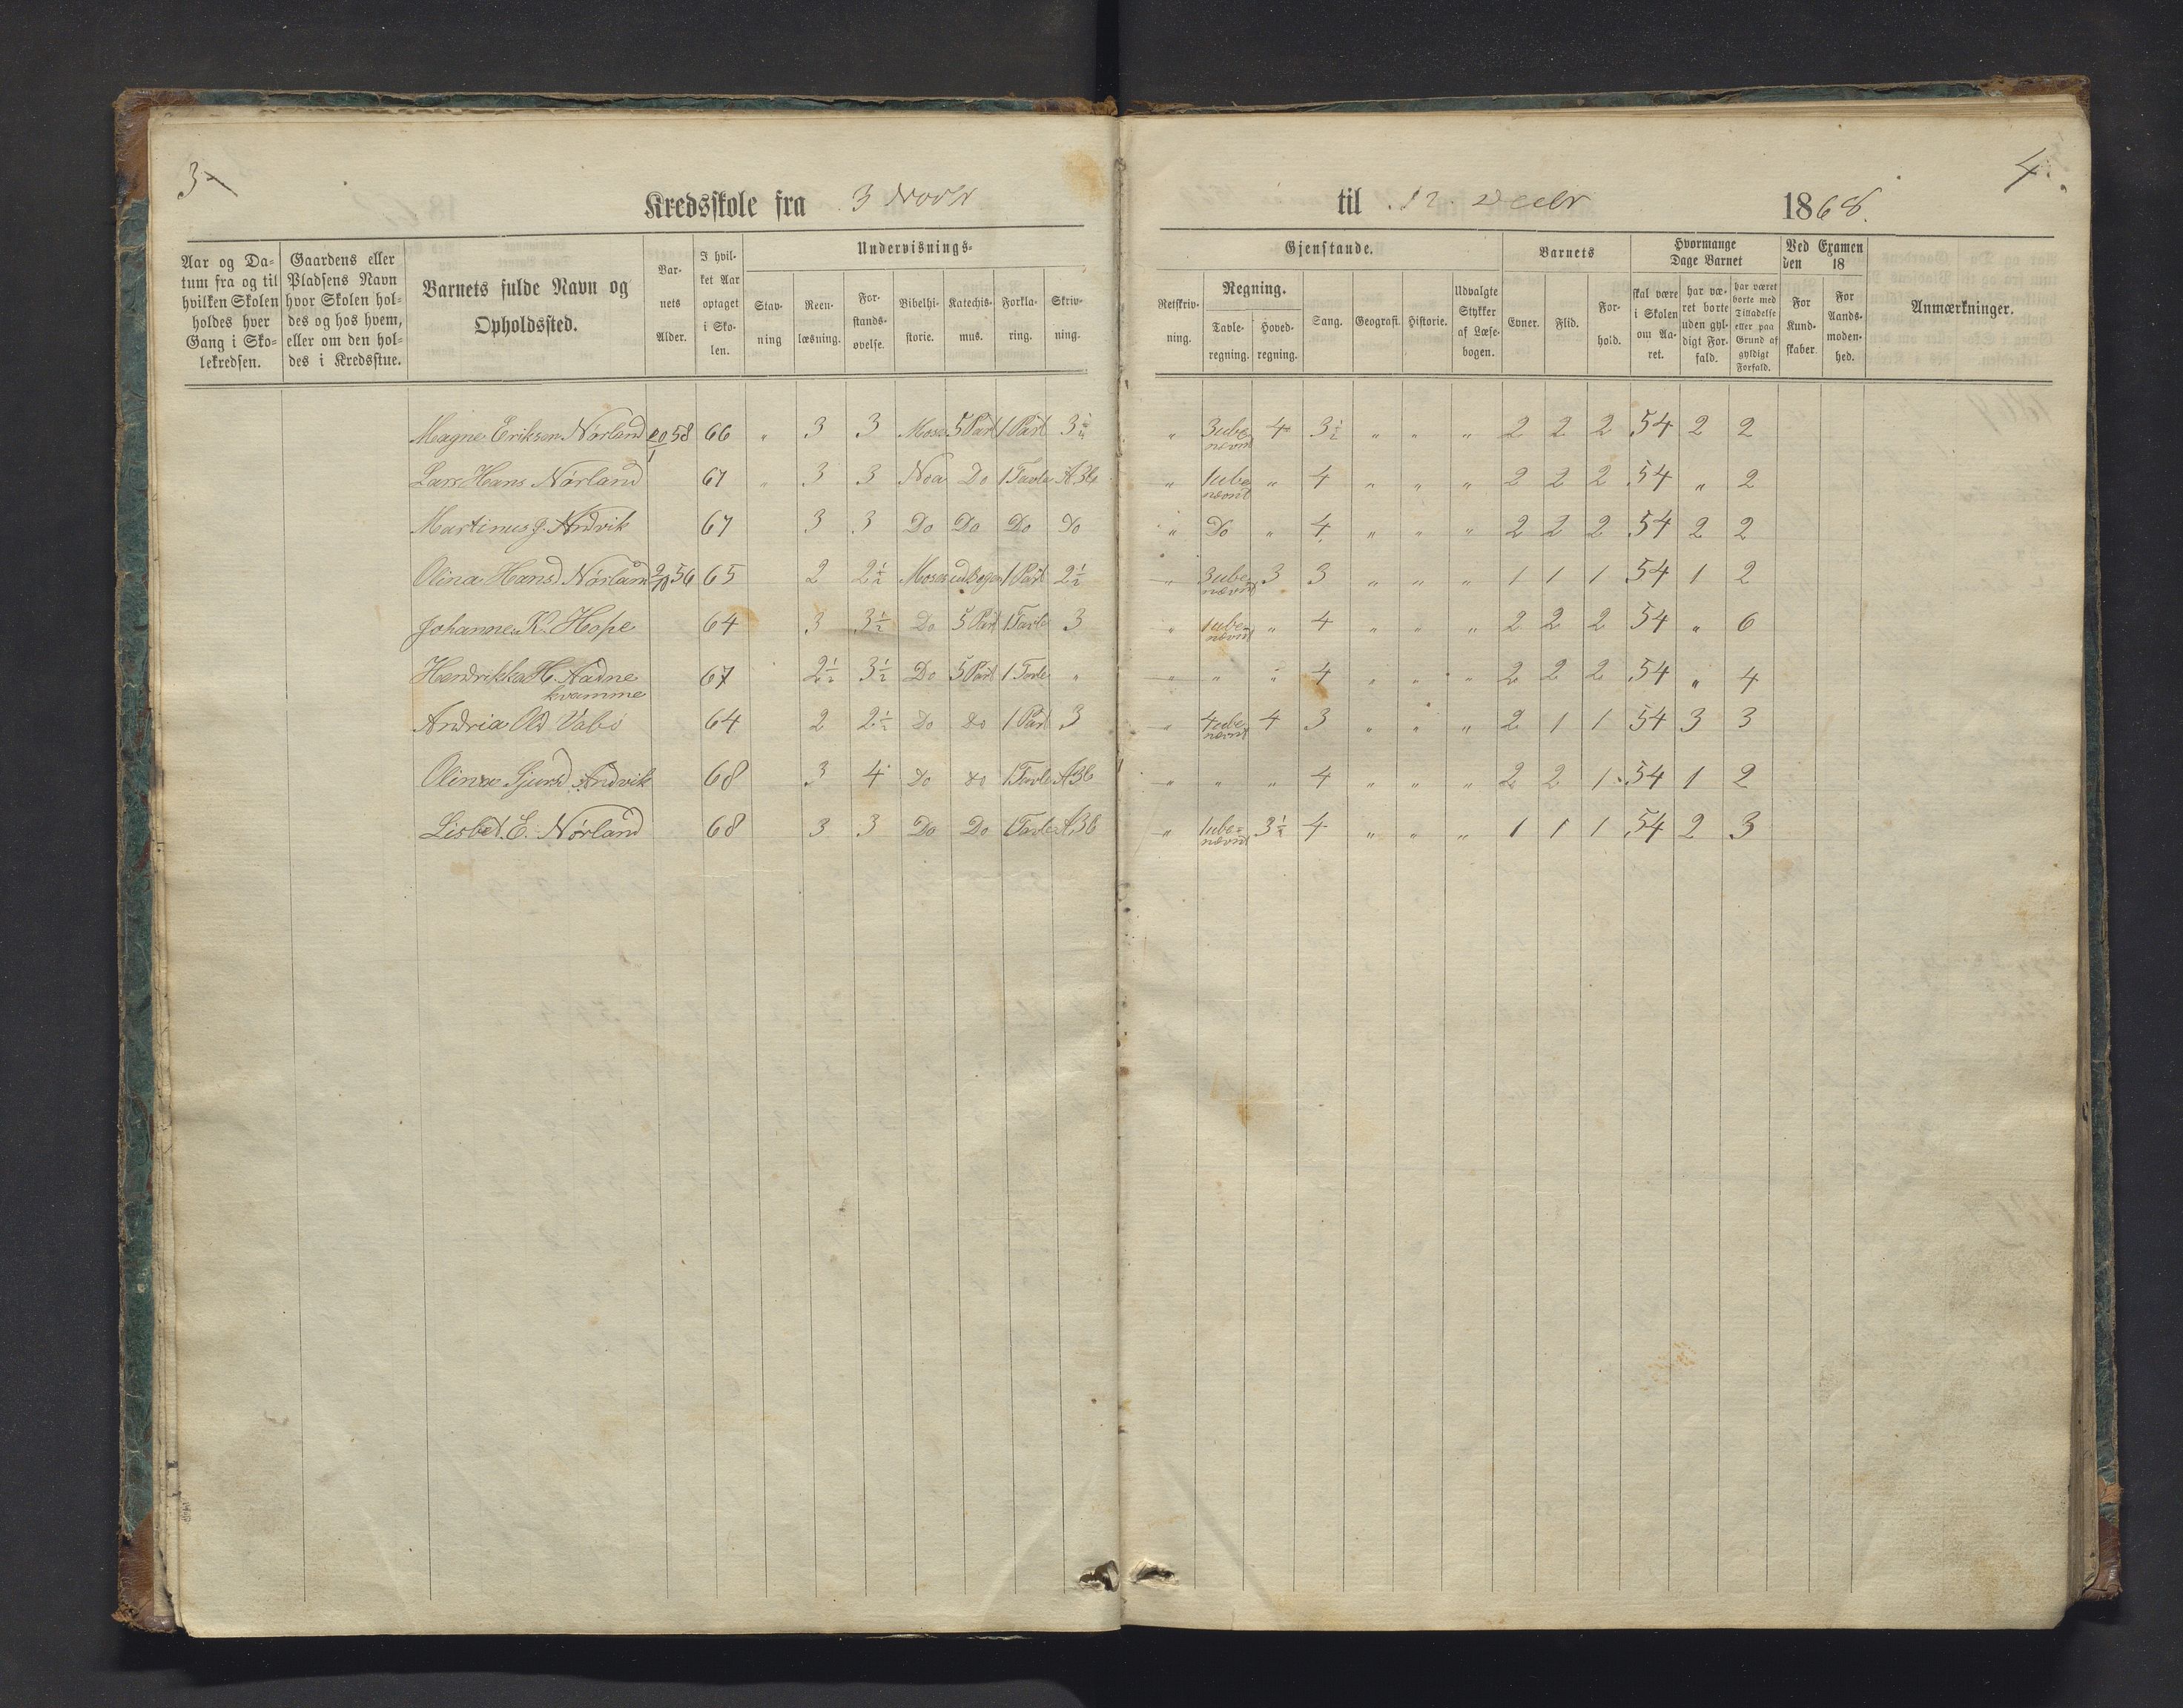 3
4.
Kredsskole fra 3 Novbr til 12. Decbr 1868.
Aar og Da-
tum fra og til
hvilken Skolen
holdes hver
Gang i Sko-
lekredsen.
Gaardens eller
Pladsens Navn
hvor Skolen hol-
des og hos hvem,
eller om den hol-
des i Kredsstue.
Barnets fulde Navn og
Opholdssted.
Bar-
nets
Alder.
I hvil-
ket Aar
optaget
i Sko-
len.
Undervisnings-
Stav-
ning
Reen-
læsning.
For-
stands-
øvelse.
Bibelhi-
storie.
Katechis-
mus.
Forkla-
ring.
Skriv-
ning.
Gjenstande.
Retskriv-
ning.
Regning.
Tavle-
regning.
Hoved-
regning.
Sang.
Geografi.
Historie.
Udvalgte
Stykker
af Læse-
bogen.
Barnets
Evner.
Flid.
For-
hold.
Hvormange
Dage Barnet
skal være
i Skolen
om Aa-
ret.
har væ-
ret borte
uden gyl-
digt For-
fald.
har været
borte med
Tilladelse
eller paa
Grund af
gyldigt
Forfald.
Ved Examen
den 18
For
Kund-
skaber.
For
Aands-
moden-
hed.
Anmærkninger.
Magne Eriksen Nörland 20/1 58 66 " 3 3 Mose 5 Part 1 Part 3½ " 3 ube- 4 3½ " " " 2 2 2 54 2 2
nævnt
Lars Hans Nörland 67 " 3 3 Noa Do 1 Tavle ABC " 1 ube " 4 " " " 2 2 2 54 " 2
nævnt
Martinus J. Andvik 67 3 3 Do Do Do Do " Do " 4 " " " 2 2 2 54 2 2
Olina Hansd. Nörland 56 65 2 2½ Moses 1 Part 2½ " 3 ube 3 3 " " " 1 1 1 54 1 2
nævnt
Johanne K. Hope 64 3 3½ Do 5 Part 1 Tavle 3 " 1 ube- " 4 " " " 2 2 2 54 " 6
nævnt
Hendrikka H. Aadne 67 2½ 3½ Do 5 Part 1 Tavle " " " " 4 " " " 2 2 2 54 " 4
kvamme
Andria Old Vabö 64 2 2½ Do Do 1 Part 3 " 4 ube 4 3 " " " 2 1 1 54 3 3
nævnt
Olina Sjursd Andvik 68 3 4 Do Do 1 Tavle ABC " " " 4 " " " 2 2 1 54 1 2
Lisbet E. Nörland 68 3 3 Do Do 1 Tavle ABC " 1 ube- 3½ 4 " " " 1 1 1 54 2 3
nævnt